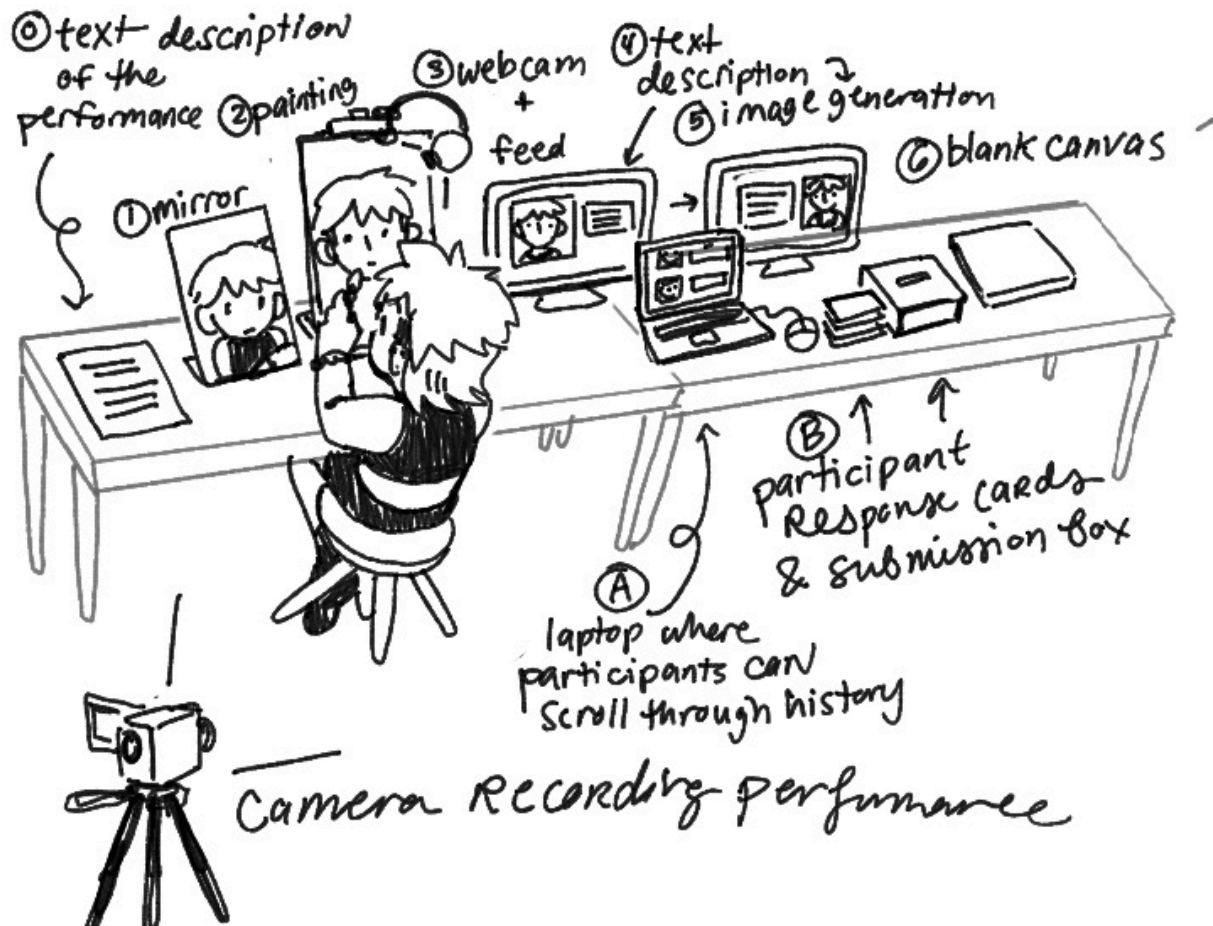 ⓪ text description
of the
performance
① mirror
② painting
③ webcam
+
feed
④ text
description
⑤ image generation
⑥ blank canvas
Ⓐ
laptop where
participants can
scroll through history
Ⓑ
participant
Response cards
& submission box
camera Recording perfumance